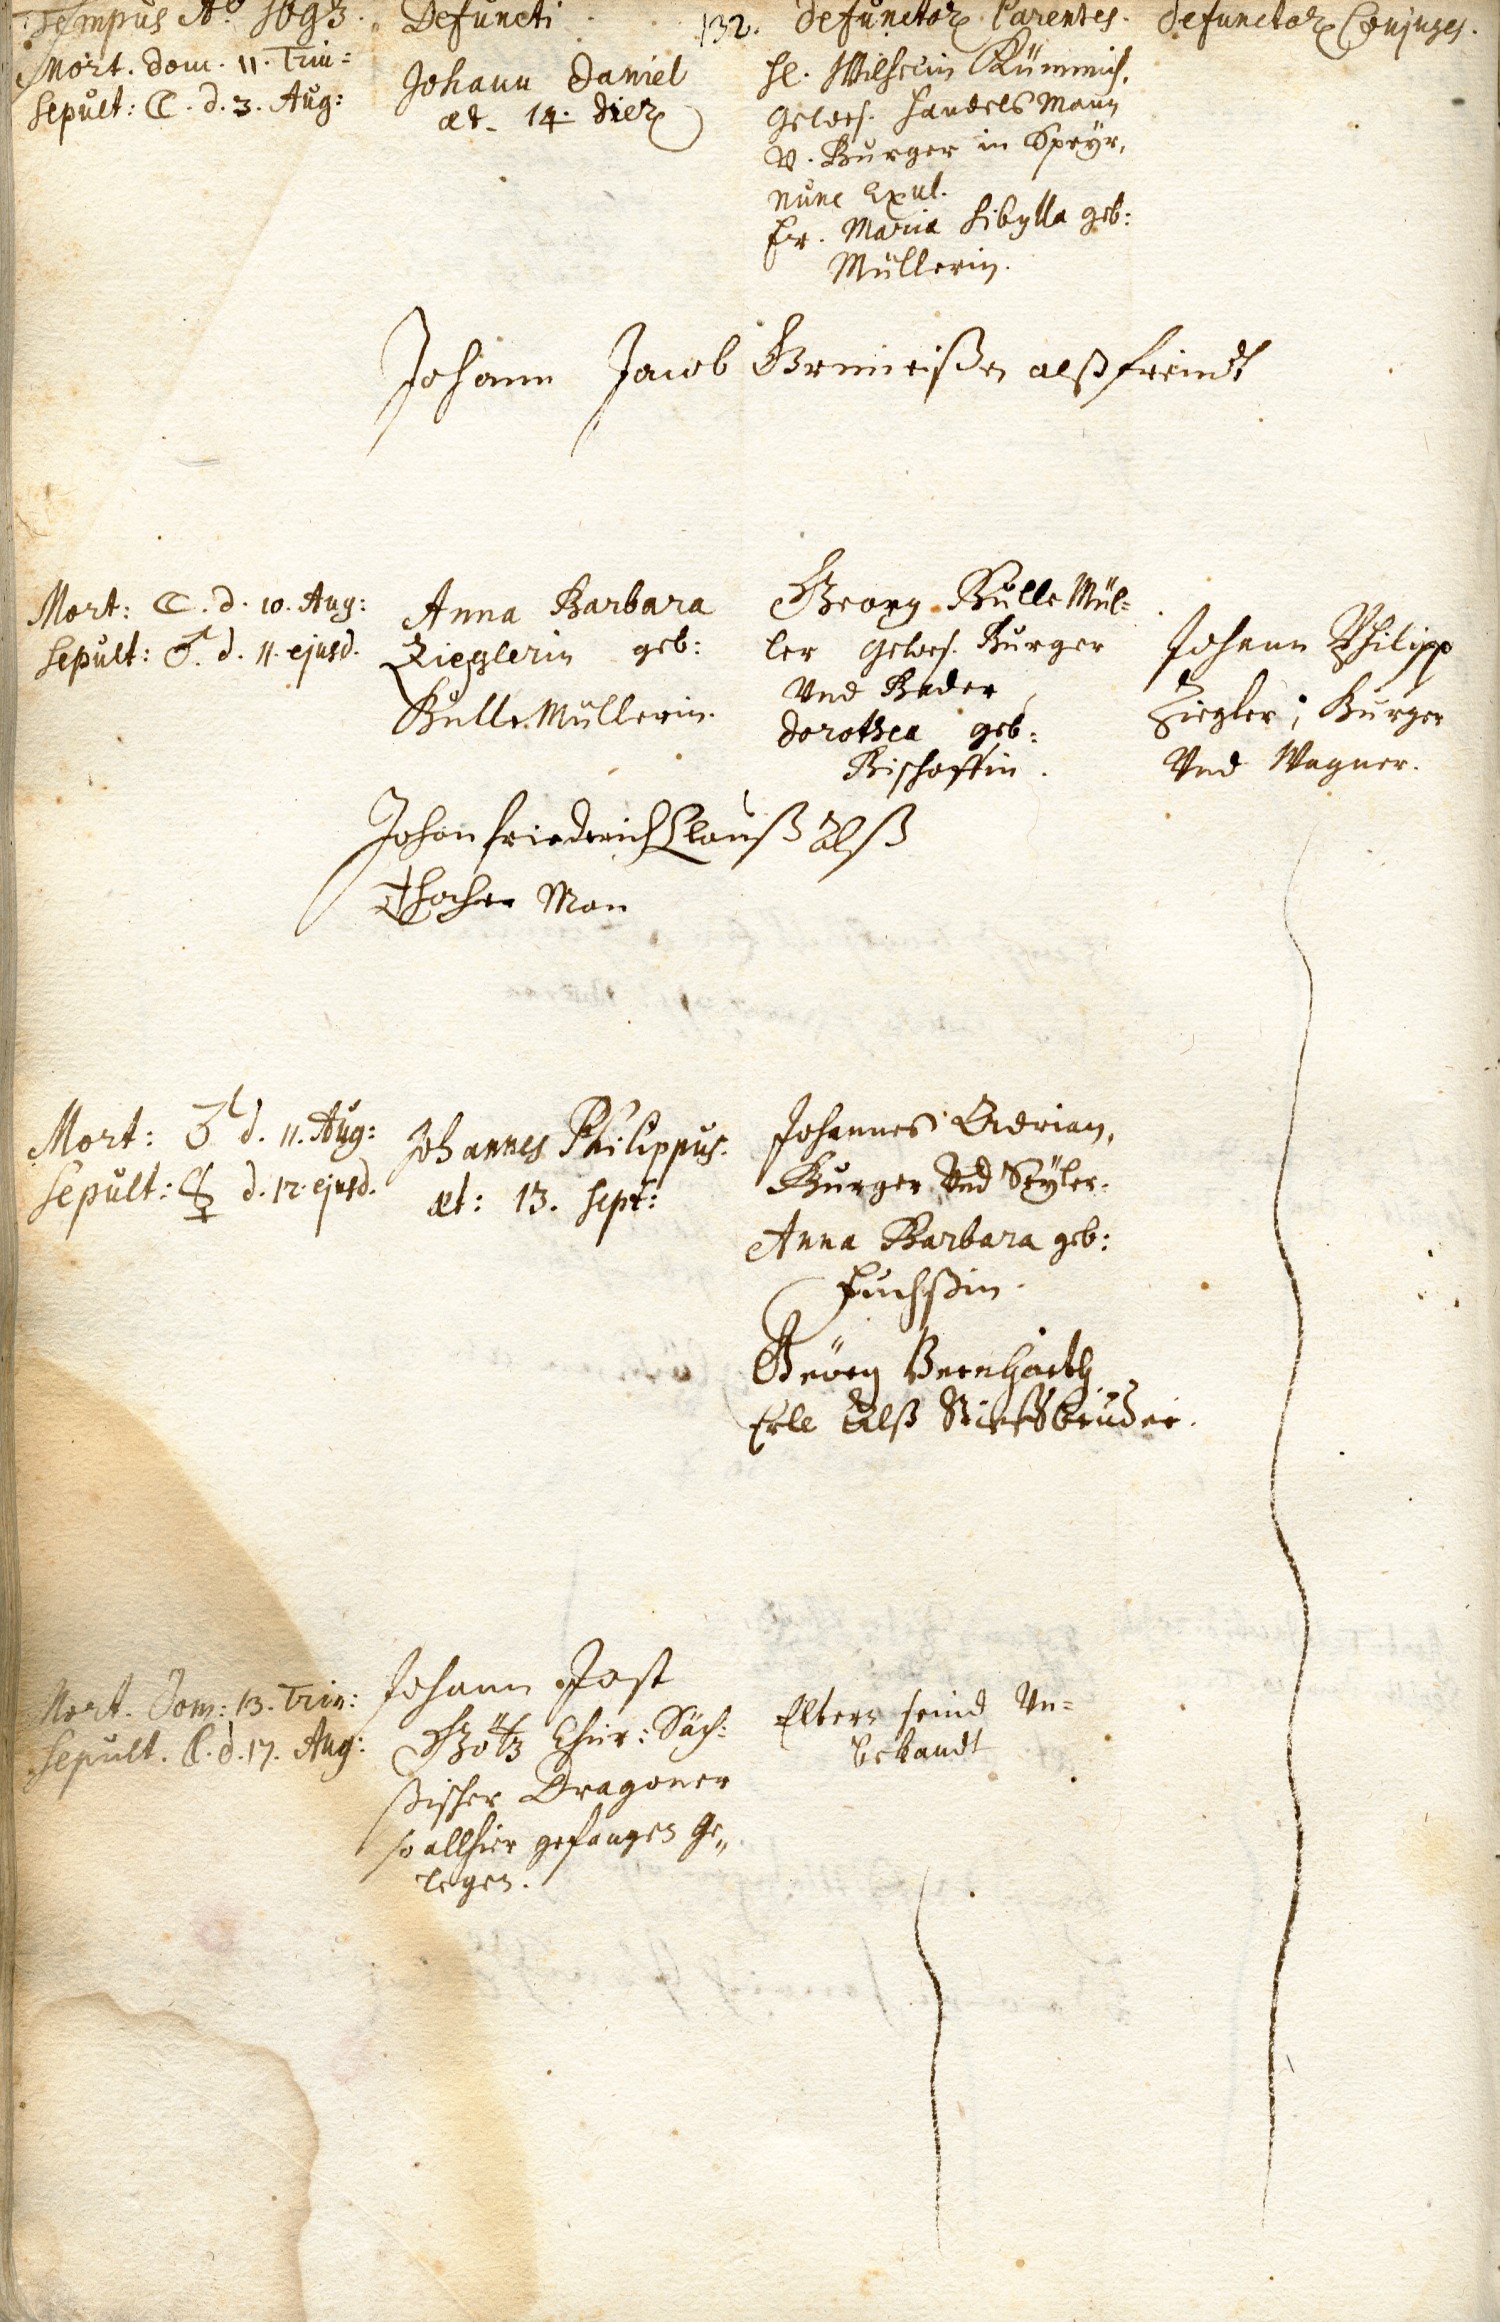 Tempus Aō 1693. Defuncti. 132. defunctor Parentes. defunctor Conjuges.
Mort. Dom. 11. Trin:
Sepult: ☾. d. 3. Aug:
Johann Daniel
æt. 14. dier
H. Wilhelm Kümmich,
Gewes. Handels Mann
V. Burger in Speyr,
nunc Exul.
Fr. Maria Sibylla geb:
Müllerin.
Johann Jacob alß freindt
Mort: ☾. d. 10. Aug:
Sepult: ♂. d. 11. ejusd.
Anna Barbara
Zieglerin geb:
Bulle Müllerin.
Georg Bulle Mül=
ler Gewes. Burger
Vnd Bader,
Dorothea geb:
Bischoffin.
Johann Philipp
Ziegler, Burger
Vnd Wagner.
Johan friederich Clauß alß
Thochter Man
Mort: ♂ d. 11. Aug:
Sepult: ☿ d. 12. ejusd.
Johannes Philippus.
æt: 13. sept:
Johannes Adrian,
Burger Vnd Seyler.
Anna Barbara geb:
Fuchßin.
Georg Bernharth
Erle alß Stieffbruder.
Mort. Dom: 13. Trin:
Sepult. ☾. d. 17. Aug:
Johann Jost
Götz Chur: Säch:
ßischer Dragoner
so allhier gefangen Ge„
legen.
Eltern seind Vn=
bekandt